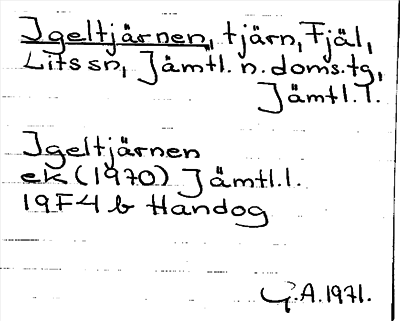 Igeltjärnen, tjärn, Fjäl,
Lits sn, Jämtl. n. doms. tg,
Jämtl. l.
Igeltjärnen
ek (1970) Jämtl. l.
19F4 b Handog
G.A. 1971.